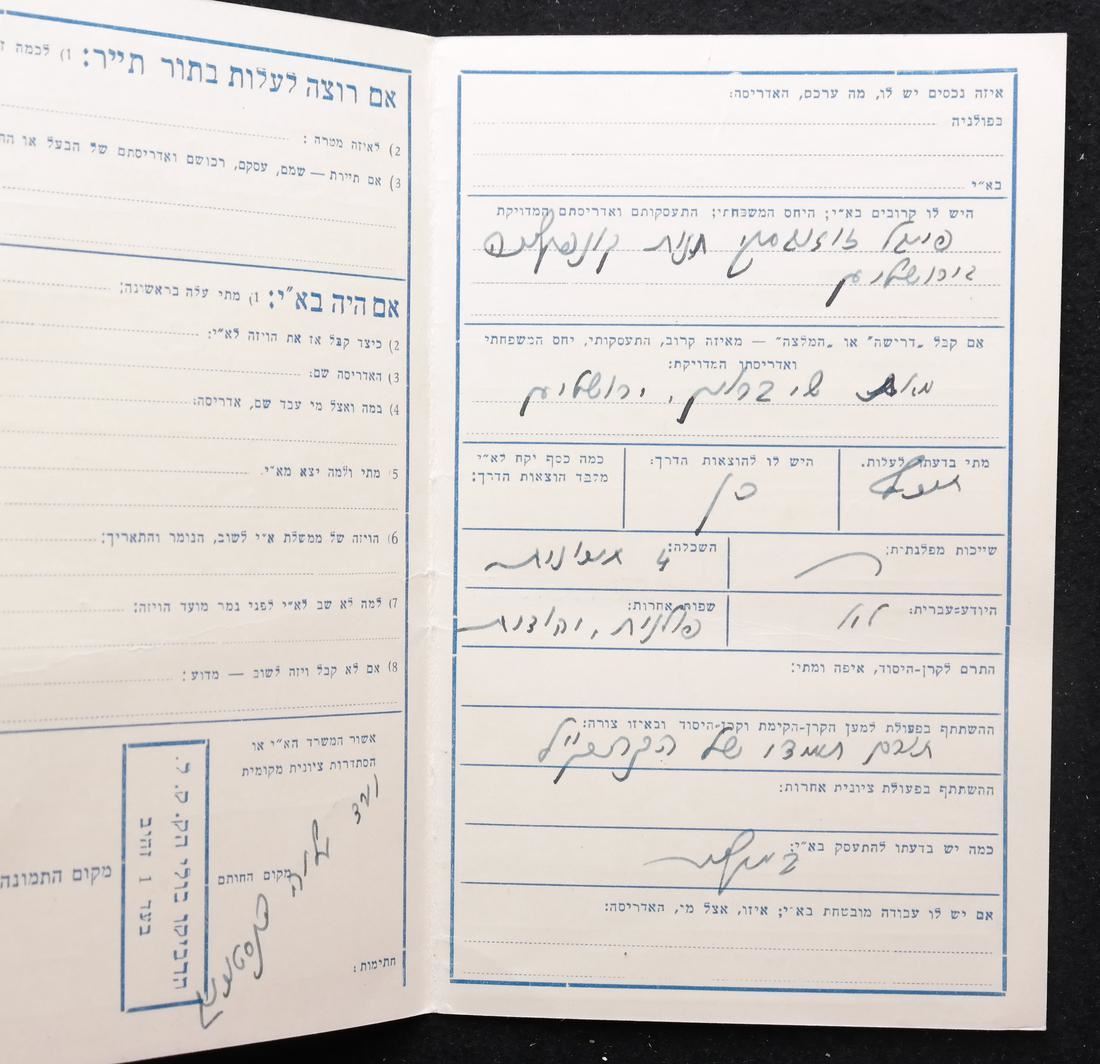 איזה נכסים יש לו, מה ערכם, האדריסה:
בפולניה
בא״י
היש לו קרובים בא״י; היחס המשפחתי; התעסקותם ואדריסתם המדויקת
חנות
בירושלים
אם קבל „דרישה" או „המלצה" — מאיזה קרוב, התעסקותו, יחס המשפחתי
ואדריסתו המדויקת:
מאת ירושלים
מתי בדעתו לעלות.
היש לו להוצאות הדרך:
כן
כמה כסף יקח לא״י
מלבד הוצאות הדרך:
שייכות מפלגתית:
השכלה:
4
היודע-עברית:
לא
שפות אחרות:
פולנית, יהודית
התרם לקרן-היסוד, איפה ומתי:
ההשתתף בפעולת למען הקרן-הקימת וקרן-היסוד ובאיזו צורה:
תורם תמידי של הקהק״ל
ההשתתף בפעולת ציונית אחרות:
כמה יש בדעתו להתעסק בא״י:
אם יש לו עבודה מובטחת בא״י; איזו, אצל מי, האדריסה:
אם רוצה לעלות בתור תייר: 1) לכמה
2) לאיזה מטרה:
3) אם תיירת — שמם, עסקם, רכושם ואדריסתם של הבעל או
אם היה בא״י: 1) מתי עלה בראשינה:
2) כיצד קבל אז את הויזה לא״י:
3) האדריסה שם:
4) במה ואצל מי עבד שם, אדריסה:
5 מתי ולמה יצא מא״י.
6) הויזה של ממשלת א״י לשוב, הנומר והתאריך:
7) למה לא שב לא״י לפני גמר מועד הויזה:
8) אם לא קבל ויזה לשוב — מדוע:
אשור המשרד הא״י או
הסתדרות ציונית מקומית
ועד
מקום החותם
מקום התמונה
חתימות:
הדביקו בולי הק. ק. ל.
בעד 1 זהוב